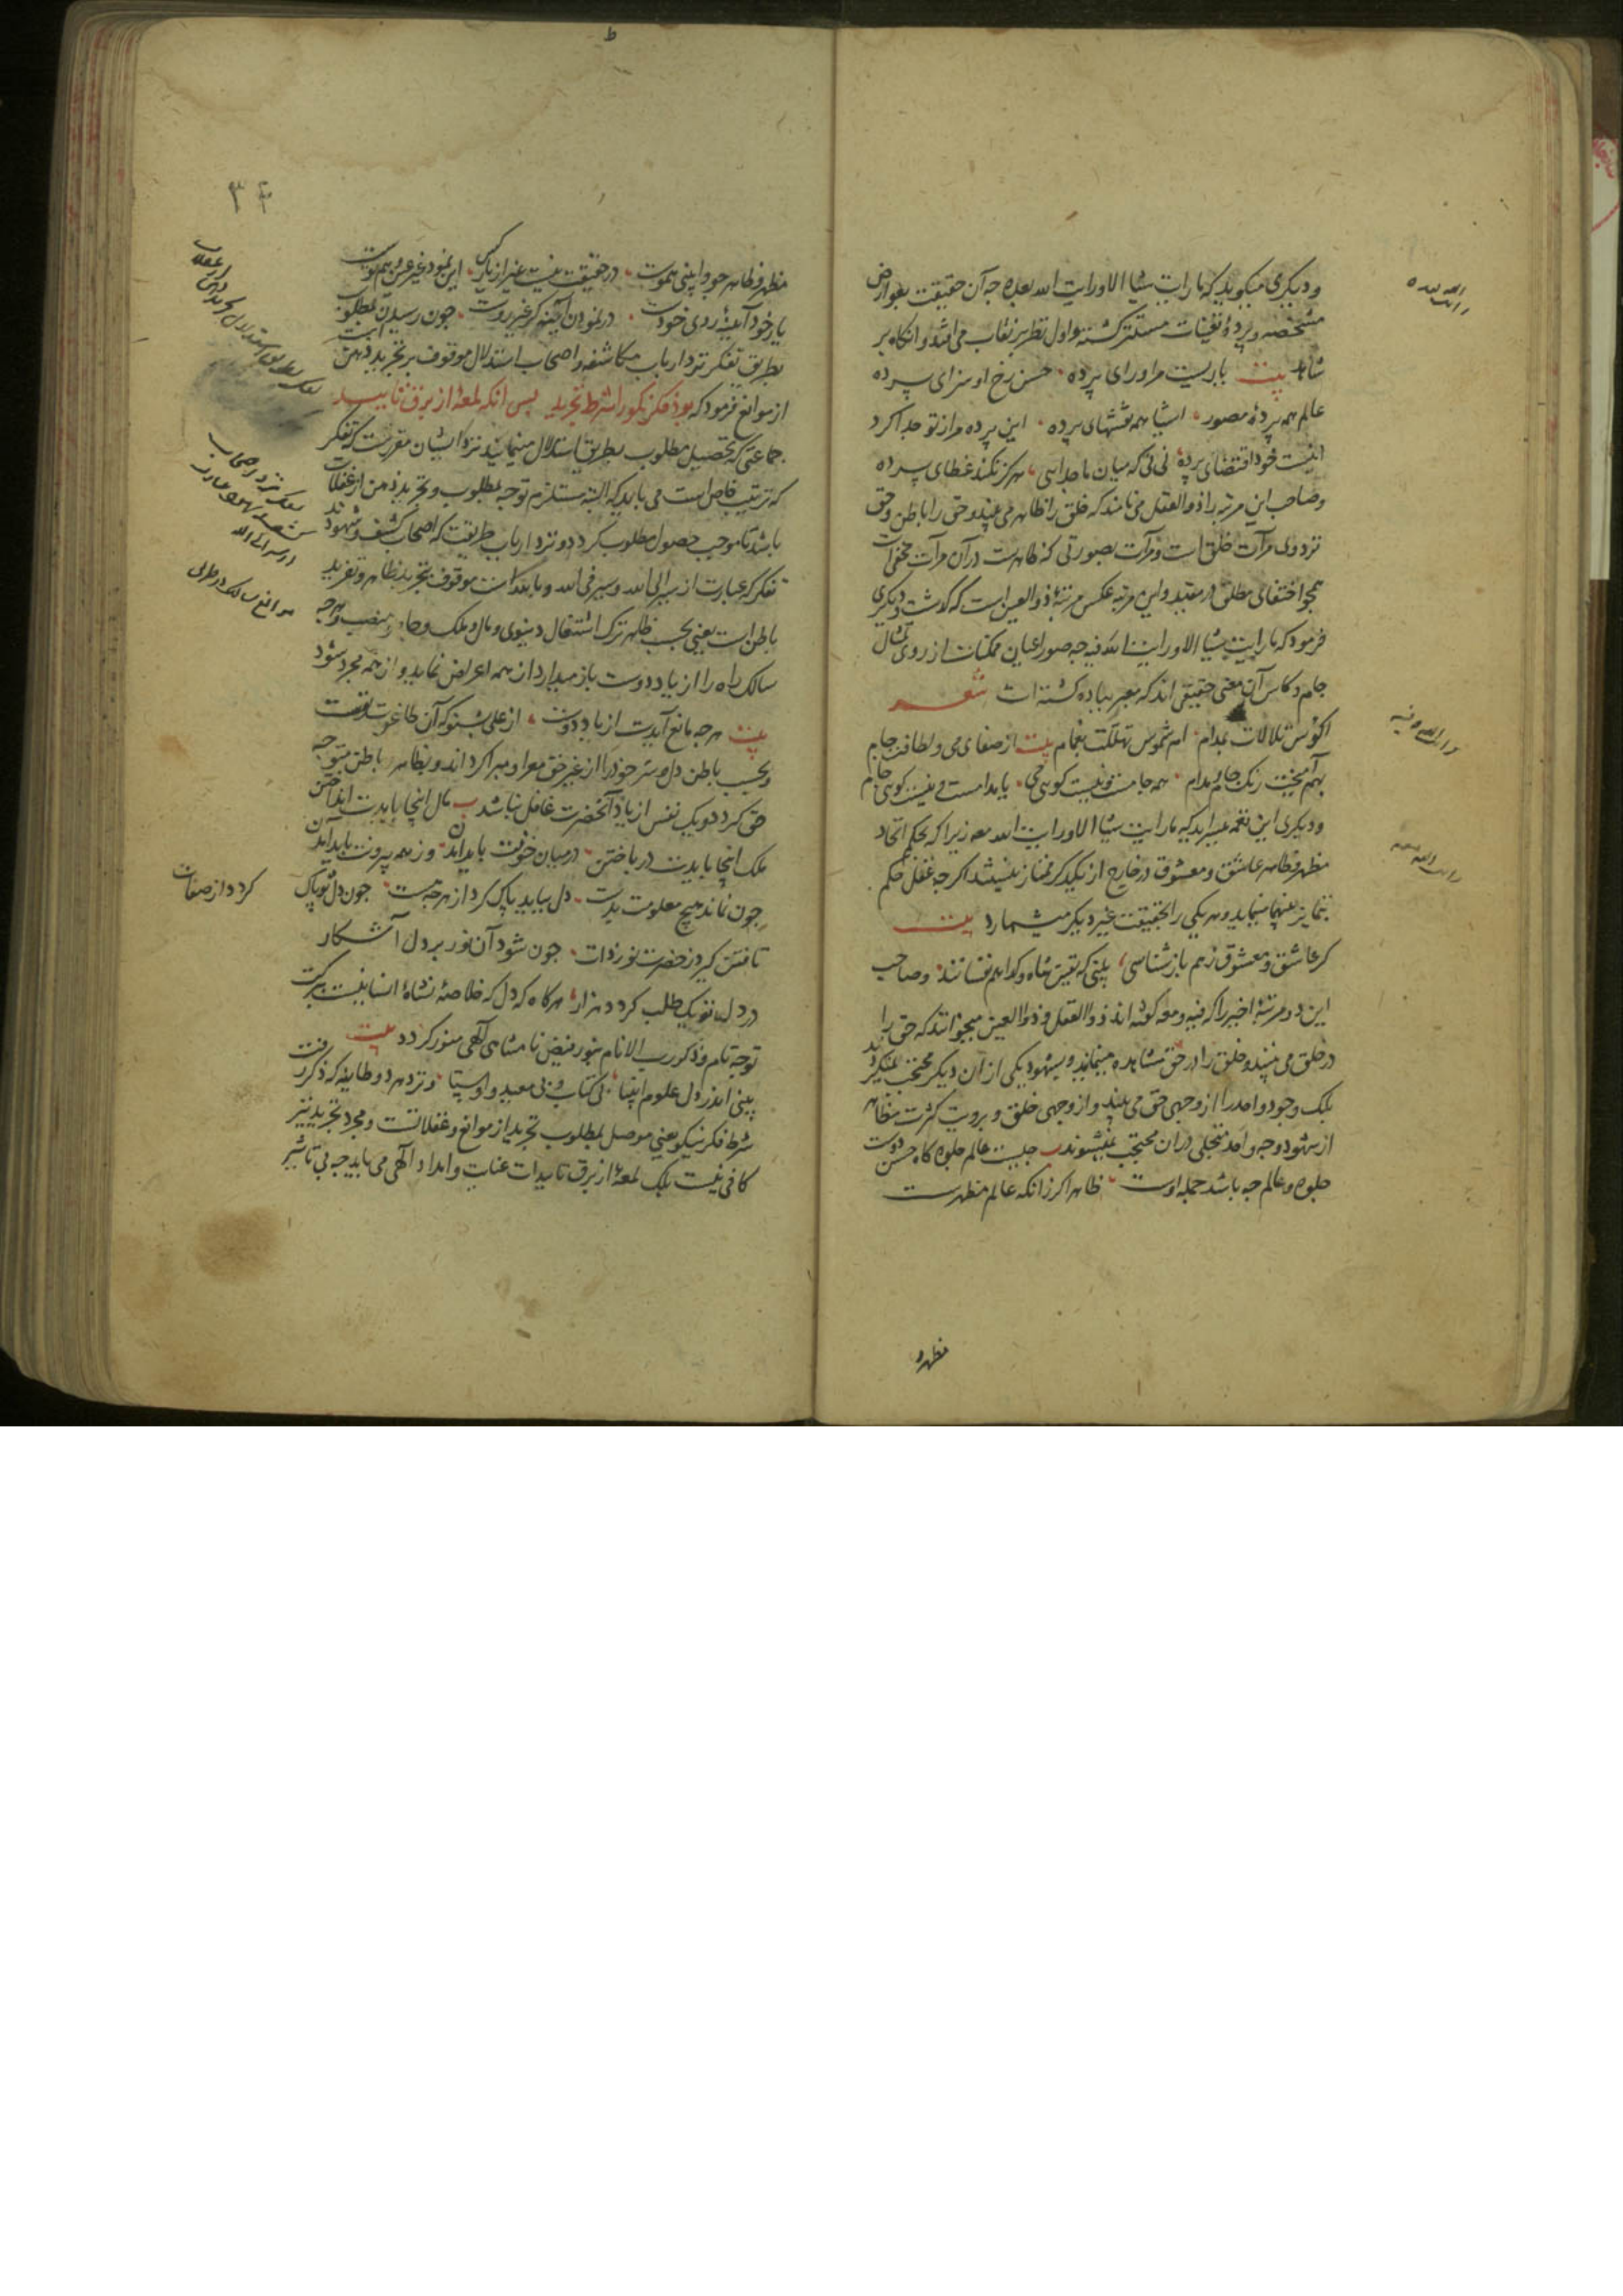 و دیگری میگوید که ما رایت شیئا الا و رایت الله بعده چه آن حقیقت بعوارض
مشخصه و پردهٔ تعینات مستتر گشته و اول نظر بر نقاب می افتد و انگاه بر
شاهد بیت یاریست مرا ورای پرده حسن رخ او سزای پرده
عالم همه پردهٔ مصور اشیا همه نقشهای پرده این پرده مرا ز تو جدا کرد
اینست خود اقتضای پرده نی نی که میان ما جدایی هرگز نکند غطای پرده
و صاحب این مرتبه را ذو العقل می نامند که خلق را ظاهر می بیند و حق را باطن و حق
نزد وی مرآت خلق است و مرآت بصورتی که ظاهرست در آن مرآت مخفی است
همچو اختفای مطلق در مقید و این مرتبه عکس مرتبهٔ ذو العین است که گذشت و دیگری
فرمود که ما رایت شیئا الا و رایت الله فیه چه صور اعیان ممکنات از روی مثال
جام و کاس آن معنی حقیقی اند که معبر بباده گشته است شعر
اکؤس تلالات بمدام ام شموس تهللت بغمام بیت از صفای می و لطافت جام
بهم آمیخت رنگ جام و مدام همه جامست و نیست گویی می یا مدامست و نیست گویی جام
و دیگری این نغمه میسراید که ما رایت شیئا الا و رایت الله معه زیرا که بحکم اتحاد
مظهر و ظاهر عاشق و معشوق در خارج از یکدیگر ممتاز نیستند اگر چه عقل حکم
بتمایز بینهما مینماید و هر یکی را بحقیقت غیر دیگر میشمارد بیت
گر عاشق و معشوق ز هم باز شناسی بینی که بتعین شاه و گدا هم نفسانند و صاحب
این دو مرتبهٔ اخیر را که فیه و معه گفته اند ذو العقل و ذو العین میخوانند که حق را
در خلق می بیند و خلق را در حق مشاهده مینماید و بشهود یکی از آن دیگر محتجب نمیگردد
بلک وجود واحد را از وجهی حق می بیند و از وجهی خلق و برویت کثرت مظاهر
از شهود وجه واحد متجلی در آن محتجب نمیشوند چیست عالم جلوه گاه حسن دوست
جلوه و عالم چه باشد جمله اوست ظاهرا گر زانکه عالم مظهرست
مظهر و
رایت الله بعده
و رایت الله فیه
رایت الله معه
۳۴
مظهر و ظاهر چو وا بینی هموست در حقیقت نیست غیر از یک کسی این نمود غیر عین وهم توست
یار خود آیینهٔ روی خودست در نمودن آینه گر غیر روست چون رسیدن بمطلوب
بطریق تفکر نزد ارباب مکاشفه و اصحاب استدلال موقوف بر تجرید ذهن است
از موانع فرمود که بود فکر نکو را شرط تجرید پس آنگه لمعهٔ از برق تایید
جماعتی که تحصیل مطلوب بطریق استدلال مینمایند نزد ایشان مقررست که تفکر
که ترتیب خاص است می باید که البته مستلزم توجه بمطلوب و تجرید ذهن از غفلات
باشد تا موجب حصول مطلوب گردد و نزد ارباب طریقت که اصحاب کشف و شهودند
تفکر که عبارت از سیر الی الله و سیر فی الله و بالله است موقوف بتجرید ظاهر و تفرید
باطن است یعنی بحسب ظاهر ترک اشتغال دنیوی و مال و ملک و جاه و منصب و هرچه
سالک راه را از یاد دوست باز میدارد از همه اعراض نماید و از همه مجرد شود
بیت هر چه مانع آیدت از یاد دوست از علی بشنو که آن طاغوت توست
و بحسب باطن دل و سر خود را از غیر حق معرا و مبرا گرداند و بظاهر و باطن متوجه
حق گردد و یک نفس از یاد آنحضرت غافل نباشد مال اینجا بایدت انداختن
ملک اینجا بایدت درباختن در میان خونت باید آمدن وز همه بیرونت باید آمدن
چون نماند هیچ معلومت بدست دل بباید پاک کرد از هر چه هست چون دل تو پاک
گردد از صفات
تافتن گیرد ز حضرت نور ذات چون شود آن نور بر دل آشکار
در دل تو یک طلب گردد هزار هر گاه که دل که خلاصهٔ نشاهٔ انسانیست ببرکت
توجه تام و ذکر رب الانام بنور فیض نامتناهی آلهی منور گردد بیت
بینی اندر دل علوم انبیا بی کتاب و بی معید و اوستا و نزد هر دو طایفه که ذکر رفت
شرط فکر نیکو یعنی موصل بمطلوب تجرید از موانع و غفلاتست و مجرد تجرید نیز
کافی نیست بلک لمعهٔ از برق تاییدات عنایت و امداد آلهی می باید چه بی تاثیر